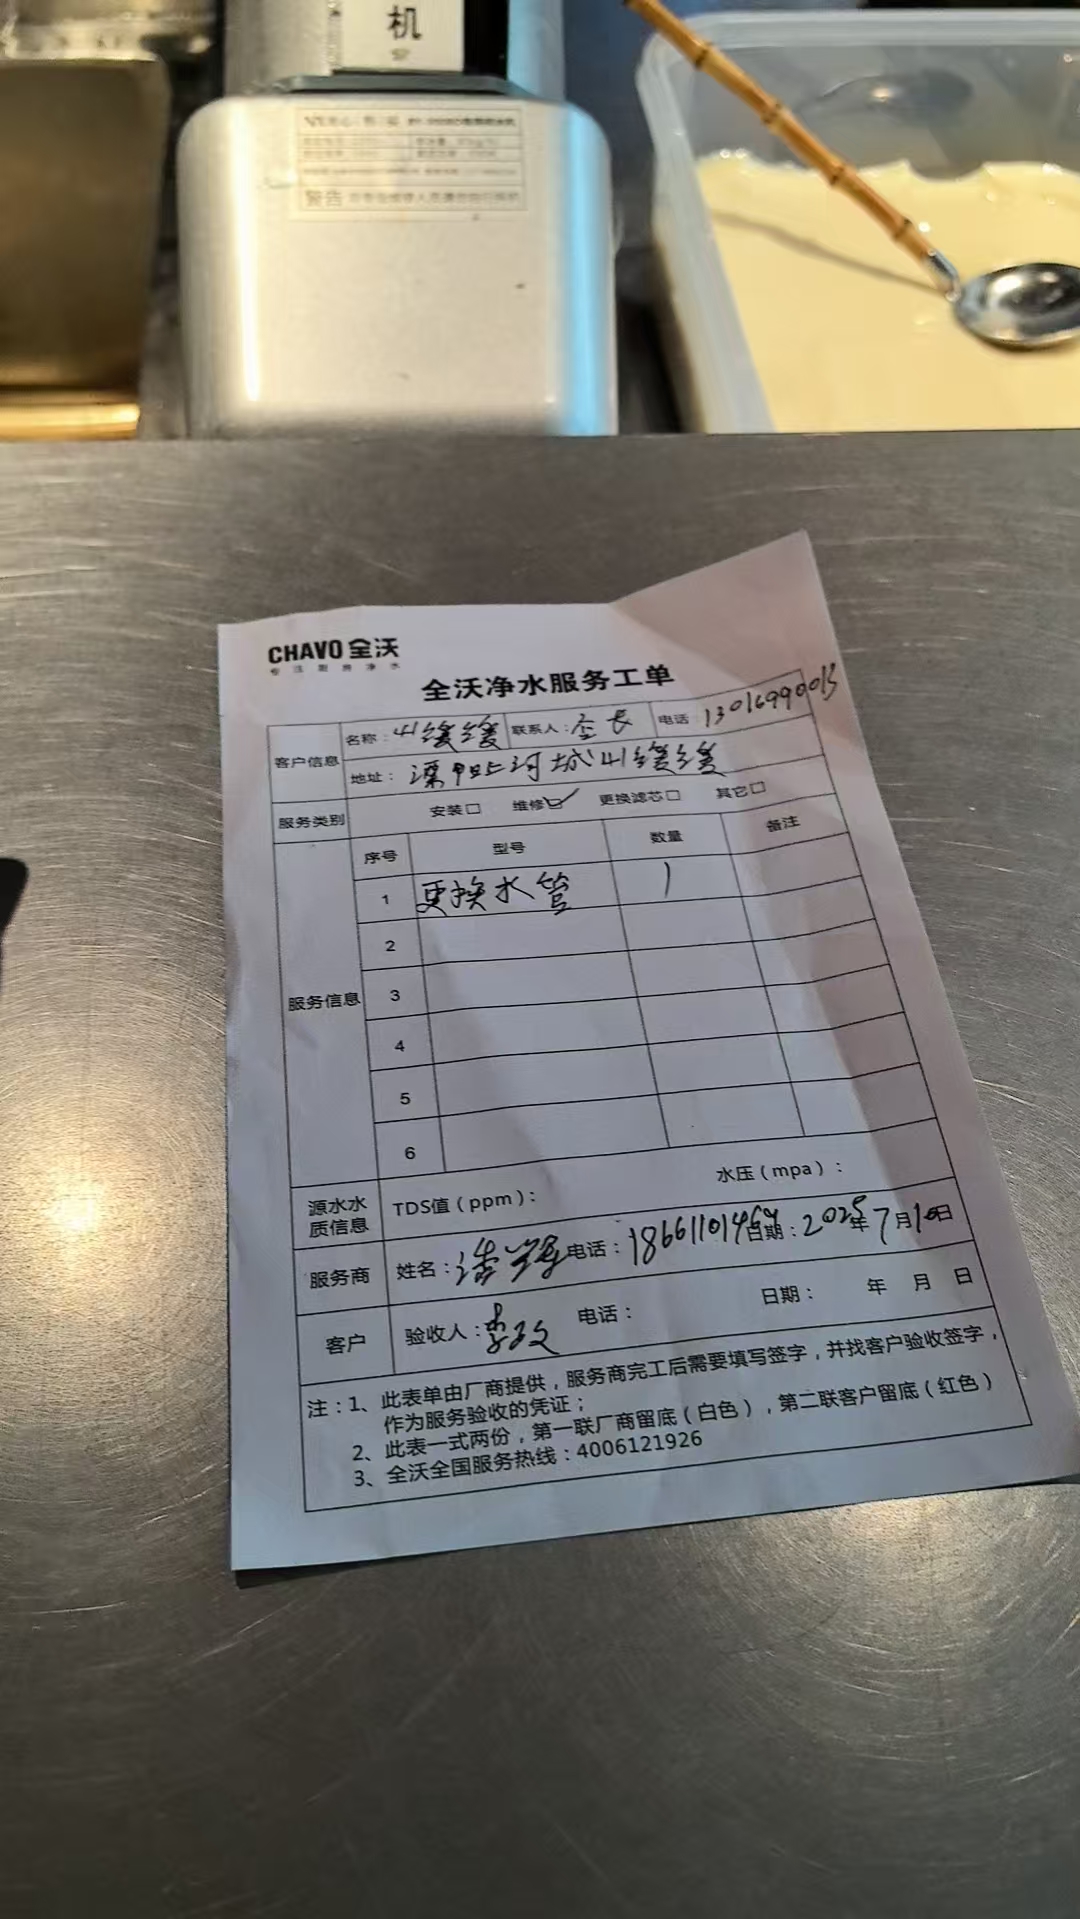 机
警告
CHAVO 全沃
专注厨房净水
全沃净水服务工单
客户信息 名称: 川缓缓 联系人: 店长 电话: 13016990013
地址: 溧阳上河城川缓缓
服务类别 安装□ 维修☑ 更换滤芯□ 其它□
服务信息 序号 型号 数量 备注
1 更换水管 1
2
3
4
5
6
源水水质信息 TDS值(ppm): 水压(mpa):
服务商 姓名: 电话: 日期: 2025年7月10日
客户 验收人: 电话: 日期: 年 月 日
注:1、此表单由厂商提供,服务商完工后需要填写签字,并找客户验收签字,
作为服务验收的凭证;
2、此表一式两份,第一联厂商留底(白色),第二联客户留底(红色)
3、全沃全国服务热线:4006121926